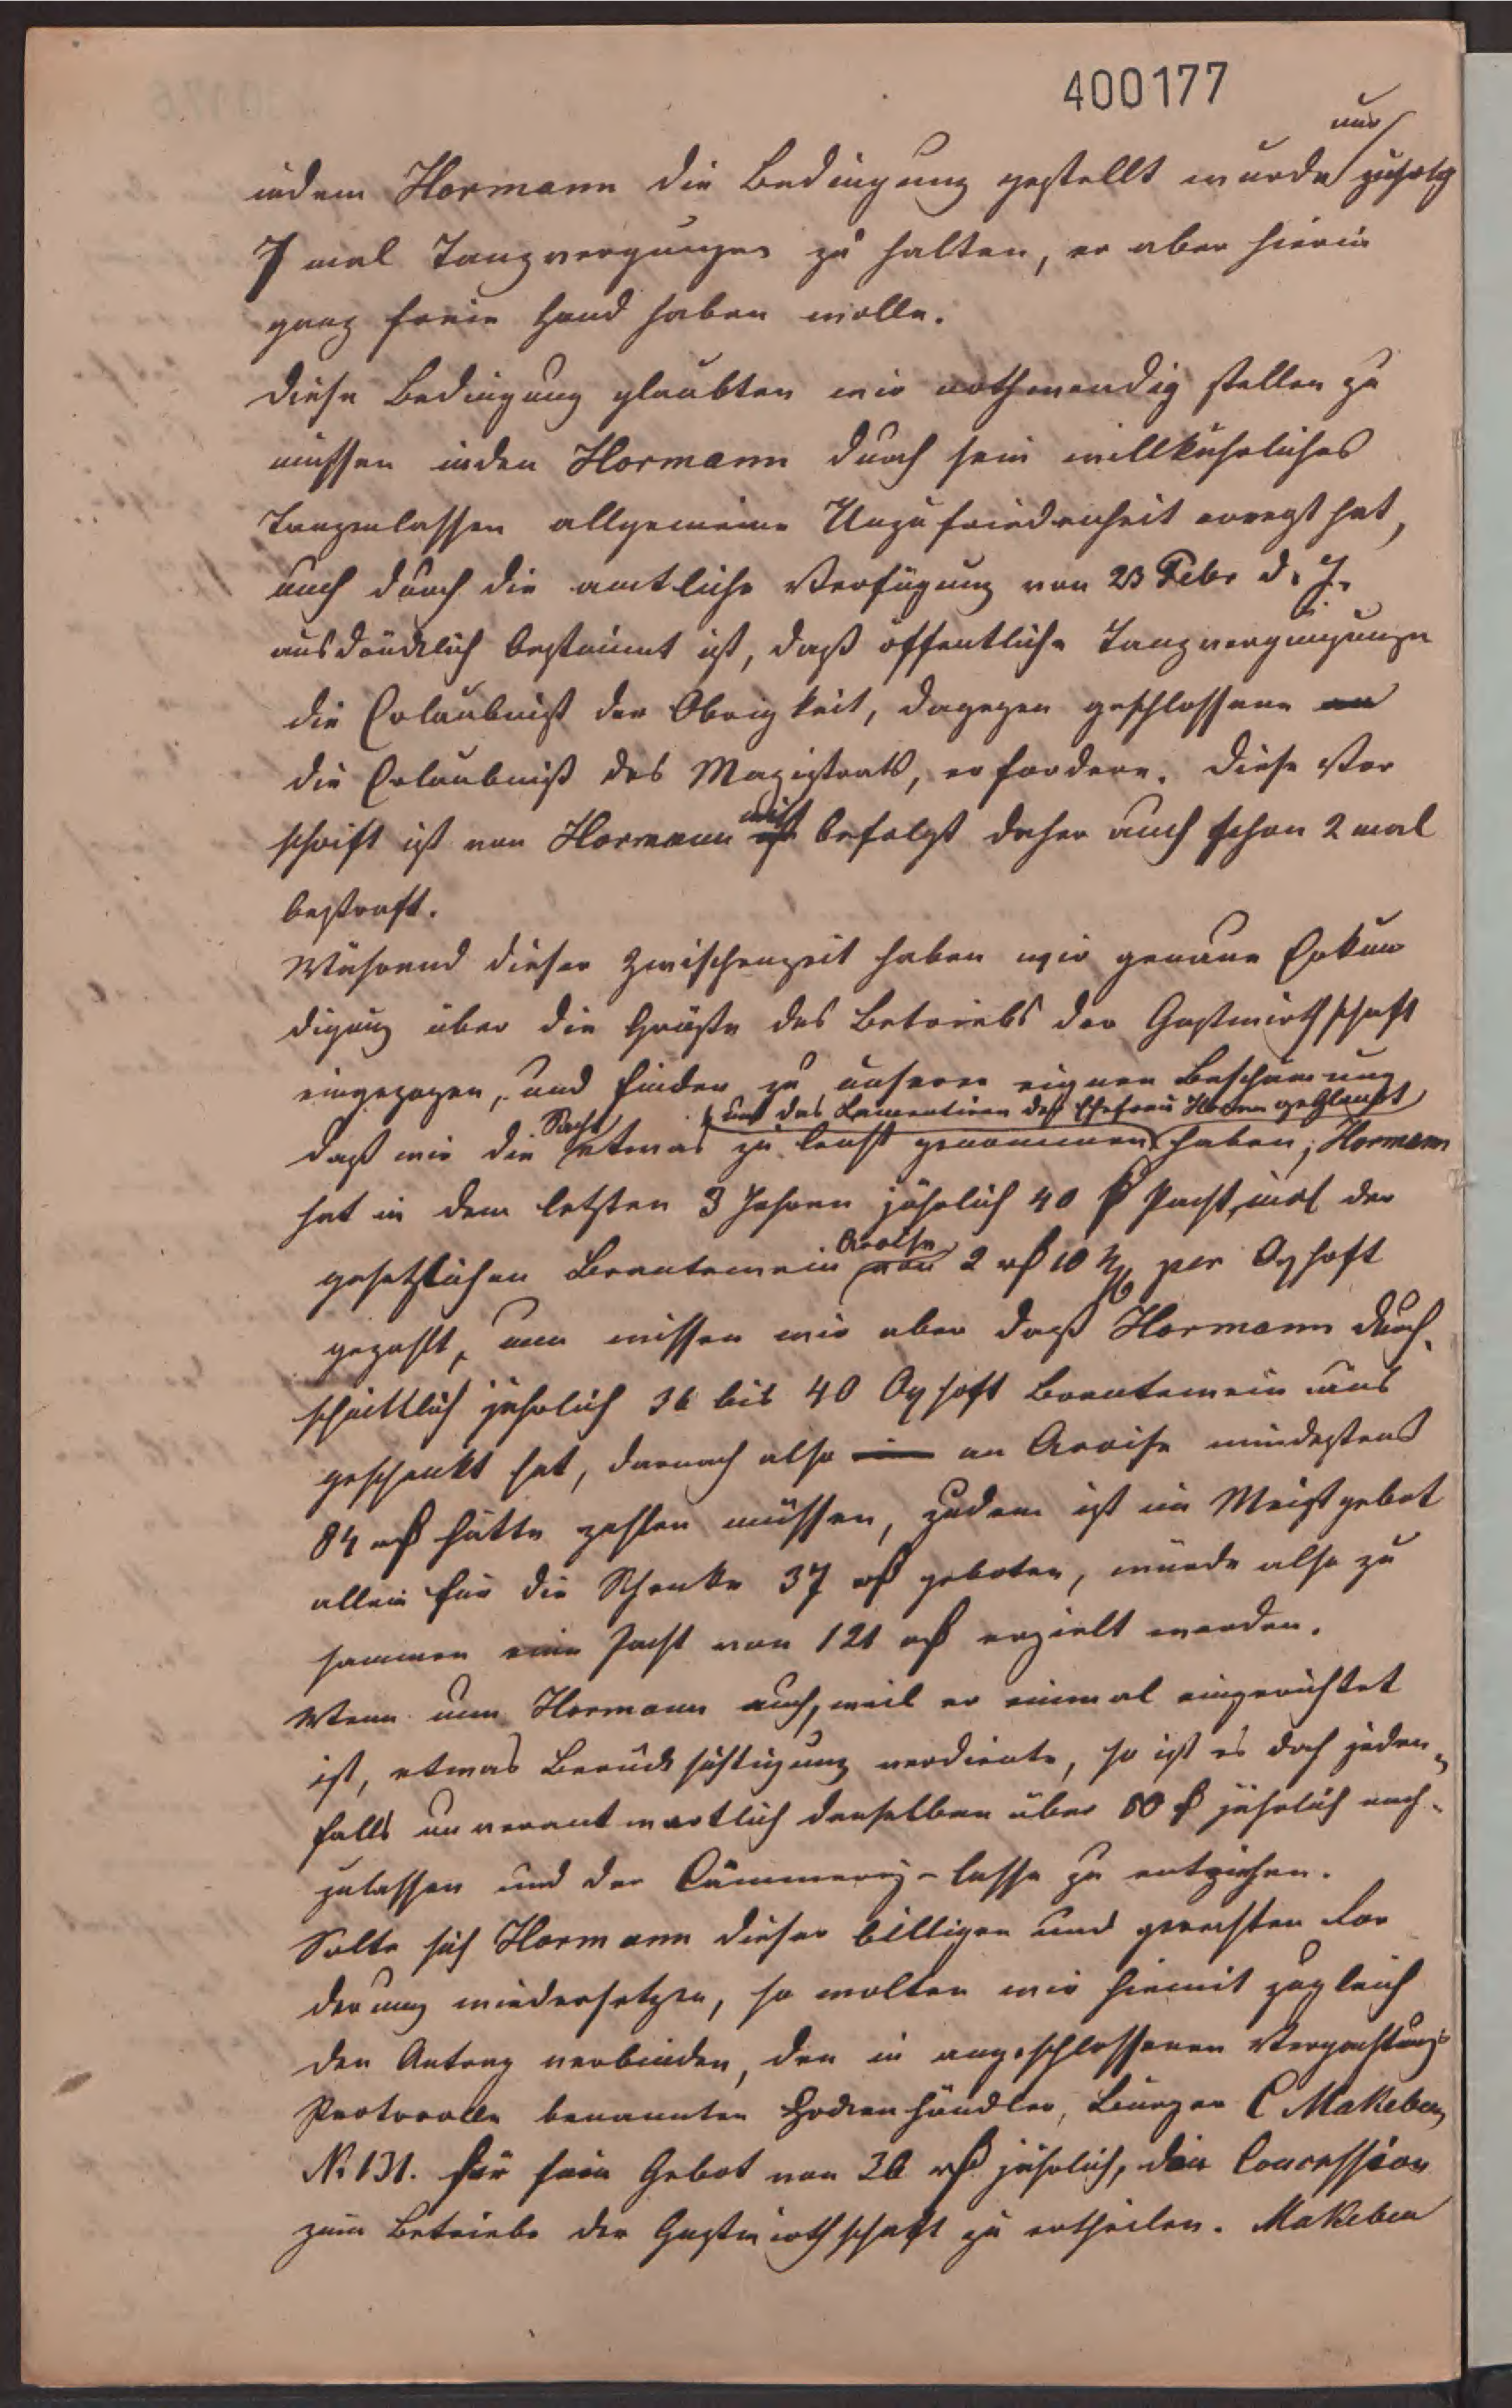 400177
nur
indem Hormann die Bedingung gestellt wurde jährlich
7 mal Tanzvergnügen zu halten, er aber hierin
ganz freie Hand haben wolle.
Diese Bedingung glaubten wir nothwendig stellen zu
müssen indem Hormann durch sein willkührliches
Tanzenlassen allgemeine Unzufriedenheit erregt hat,
auch durch die amtliche Verfügung von 23 Febr d. J.
ausdrücklich bestimmt ist, daß öffentliche Tanzvergnügungen
die Erlaubniß der Obrigkeit, dagegen geschlossene
die Erlaubniß des Magistrats, erfordere. Diese Vor
schrift ist von Hormann nicht befolgt daher auch schon 2 mal
bestraft.
Während dieser Zwischenzeit haben wir genaue Erkun
digung über die Größe des Betriebs der Gastwirthschaft
eingezogen, und finden zu unserer eignen Beschämung
und das Lamentiren der Ehefrau Hormann geglaubt
daß wir die Sache etwas zu leicht genommen haben; Hormann
hat in dem letzten 3 Jahren jährlich 40 rß Pacht, incl der
gesetzlichen Brantewein Accise von 2 rß 10 per Oxhoft
gezahlt, nun wissen wir aber daß Hormann durch-
schnittlich jährlich 36 bis 40 Oxhoft Brantewein aus
geschenkt hat, darnach also an Accise mindestens
84 rß hätte zahlen müssen, zudem ist im Meistgebot
allein für die Schenke 37 rß geboten, würde also zu
sammen eine Pacht von 121 rß erzielt werden.
Wenn nun Hormann auch, weil er einmal eingerichtet
ist, etwas Berücksichtigung verdiente, so ist es doch jeden-
falls unverantwortlich denselben über 80 rß jährlich nach-
zulassen und der Cämmerey-Casse zu entziehen.
Solte sich Hormann dieser billigen und gerechten For
derung wiedersetzen, so wolten wir hiemit zugleich
den Antrag verbinden, den in angeschlossenen Verpachtungs
Protocolle benannten Hockenhändler, Bürger C Makeben
No 131. für sein Gebot von 36 rß jährlich, die Concession
zum Betriebe der Gastwirthschaft zu ertheilen. Makeben